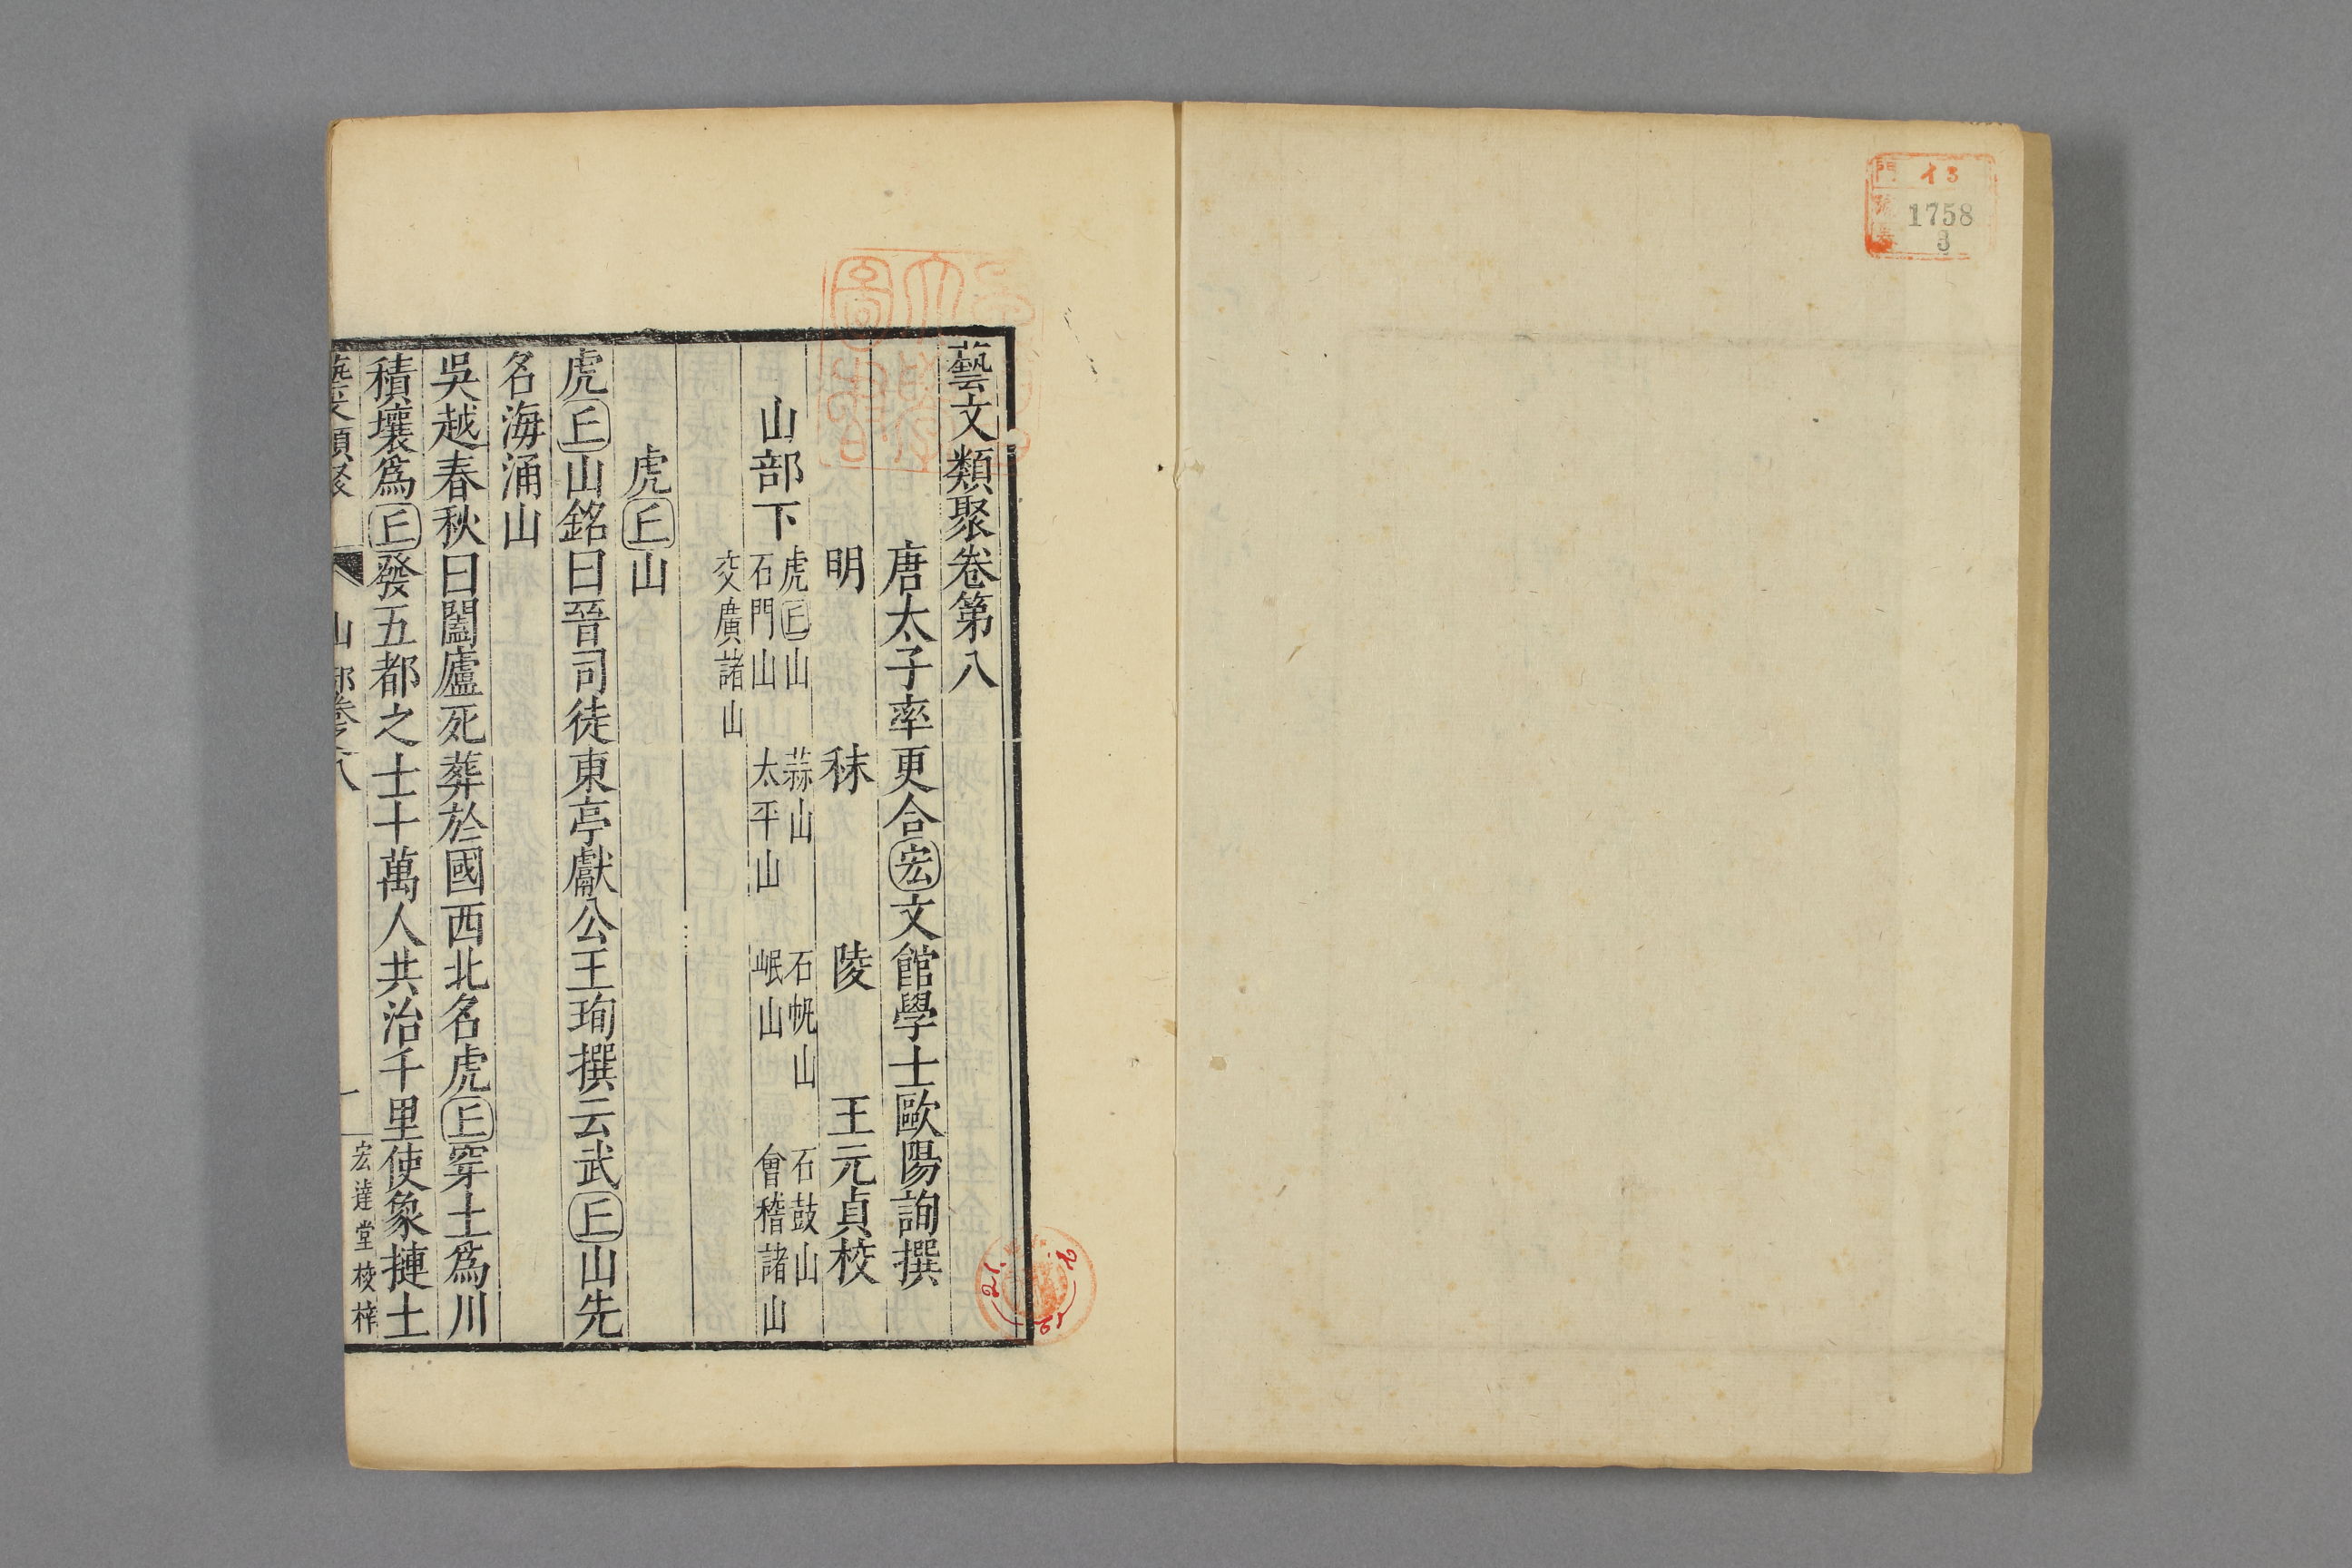 1758
3
藝文類聚卷第八
唐太子率更合宏文館學士歐陽詢撰
明 秣 陵 王元貞校
山部下
虎𠀉山 蒜山 石帆山 石鼓山
石門山 太平山 岷山 會稽諸山
交廣諸山
虎𠀉山
虎𠀉山銘曰晉司徒東亭獻公王珣撰云武𠀉山先
名海涌山
吳越春秋曰闔廬死葬於國西北名虎𠀉穿土爲川
積壤爲𠀉發五都之士十萬人共治千里使象摙土
藝文類聚 山部卷之八 一 宏達堂校梓